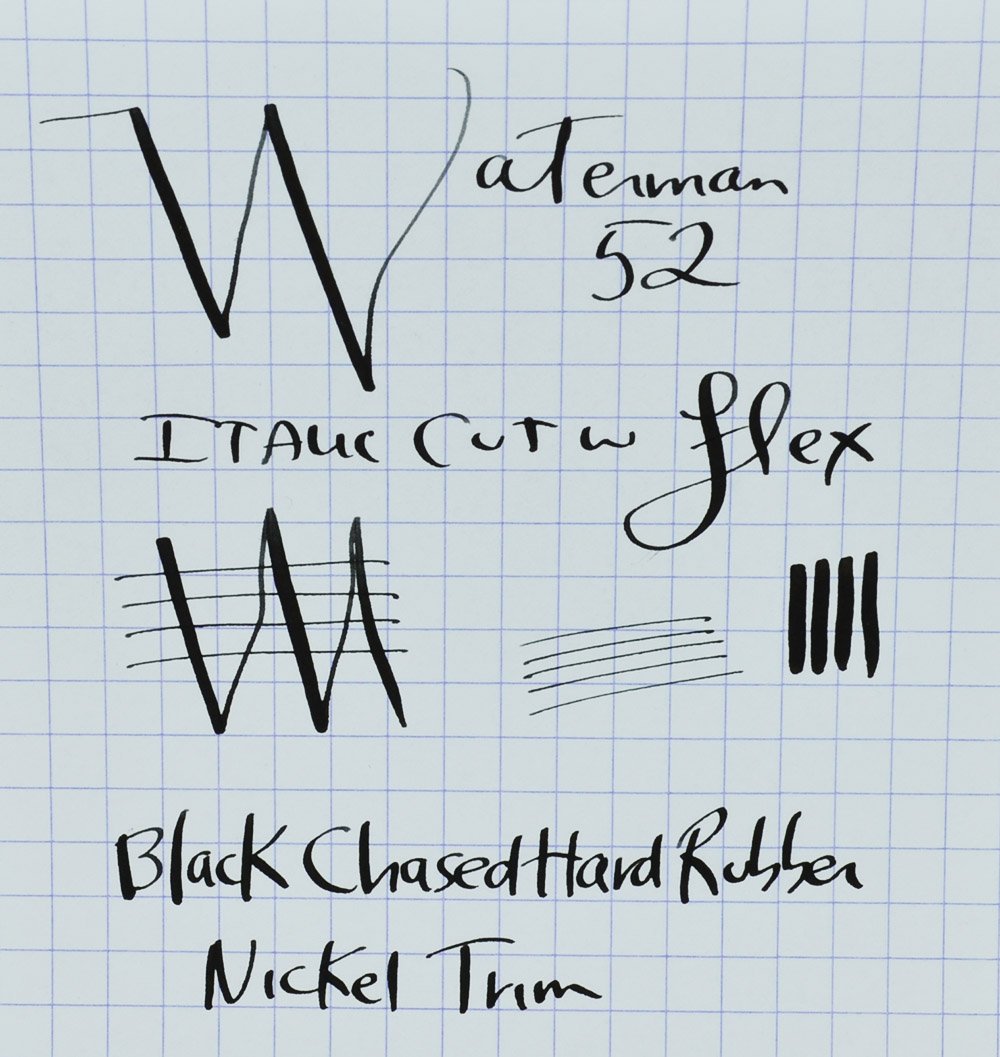 Waterman
52
ITALIC CUT W flex
Black Chased Hard Rubber
Nickel Trim